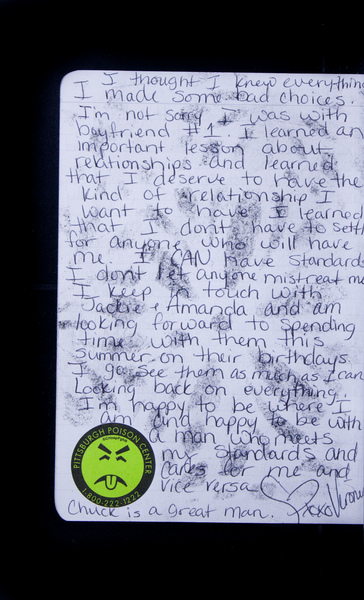 I thought I knew everything
I made some bad choices.
I'm not sorry I was with
boyfriend #1. I learned an
important lesson about
relationships and learned
that I deserve to have the
kind of relationship I
want to have. I learned
that I don't have to settl
for anyone who will have
me. I CAN have standards
I don't let anyone mistreat me
I keep in touch with
Jackie & Amanda and am
looking forward to spending
time with them this
summer on their birthdays.
I go see them as much as I can
Looking back on everything,
I'm happy to be where I
am and happy to be with
a man who meets
my standards and
cares for me and
vice versa.
xoxo
Chuck is a great man.
PITTSBURGH POISON CENTER
1-800-222-1222